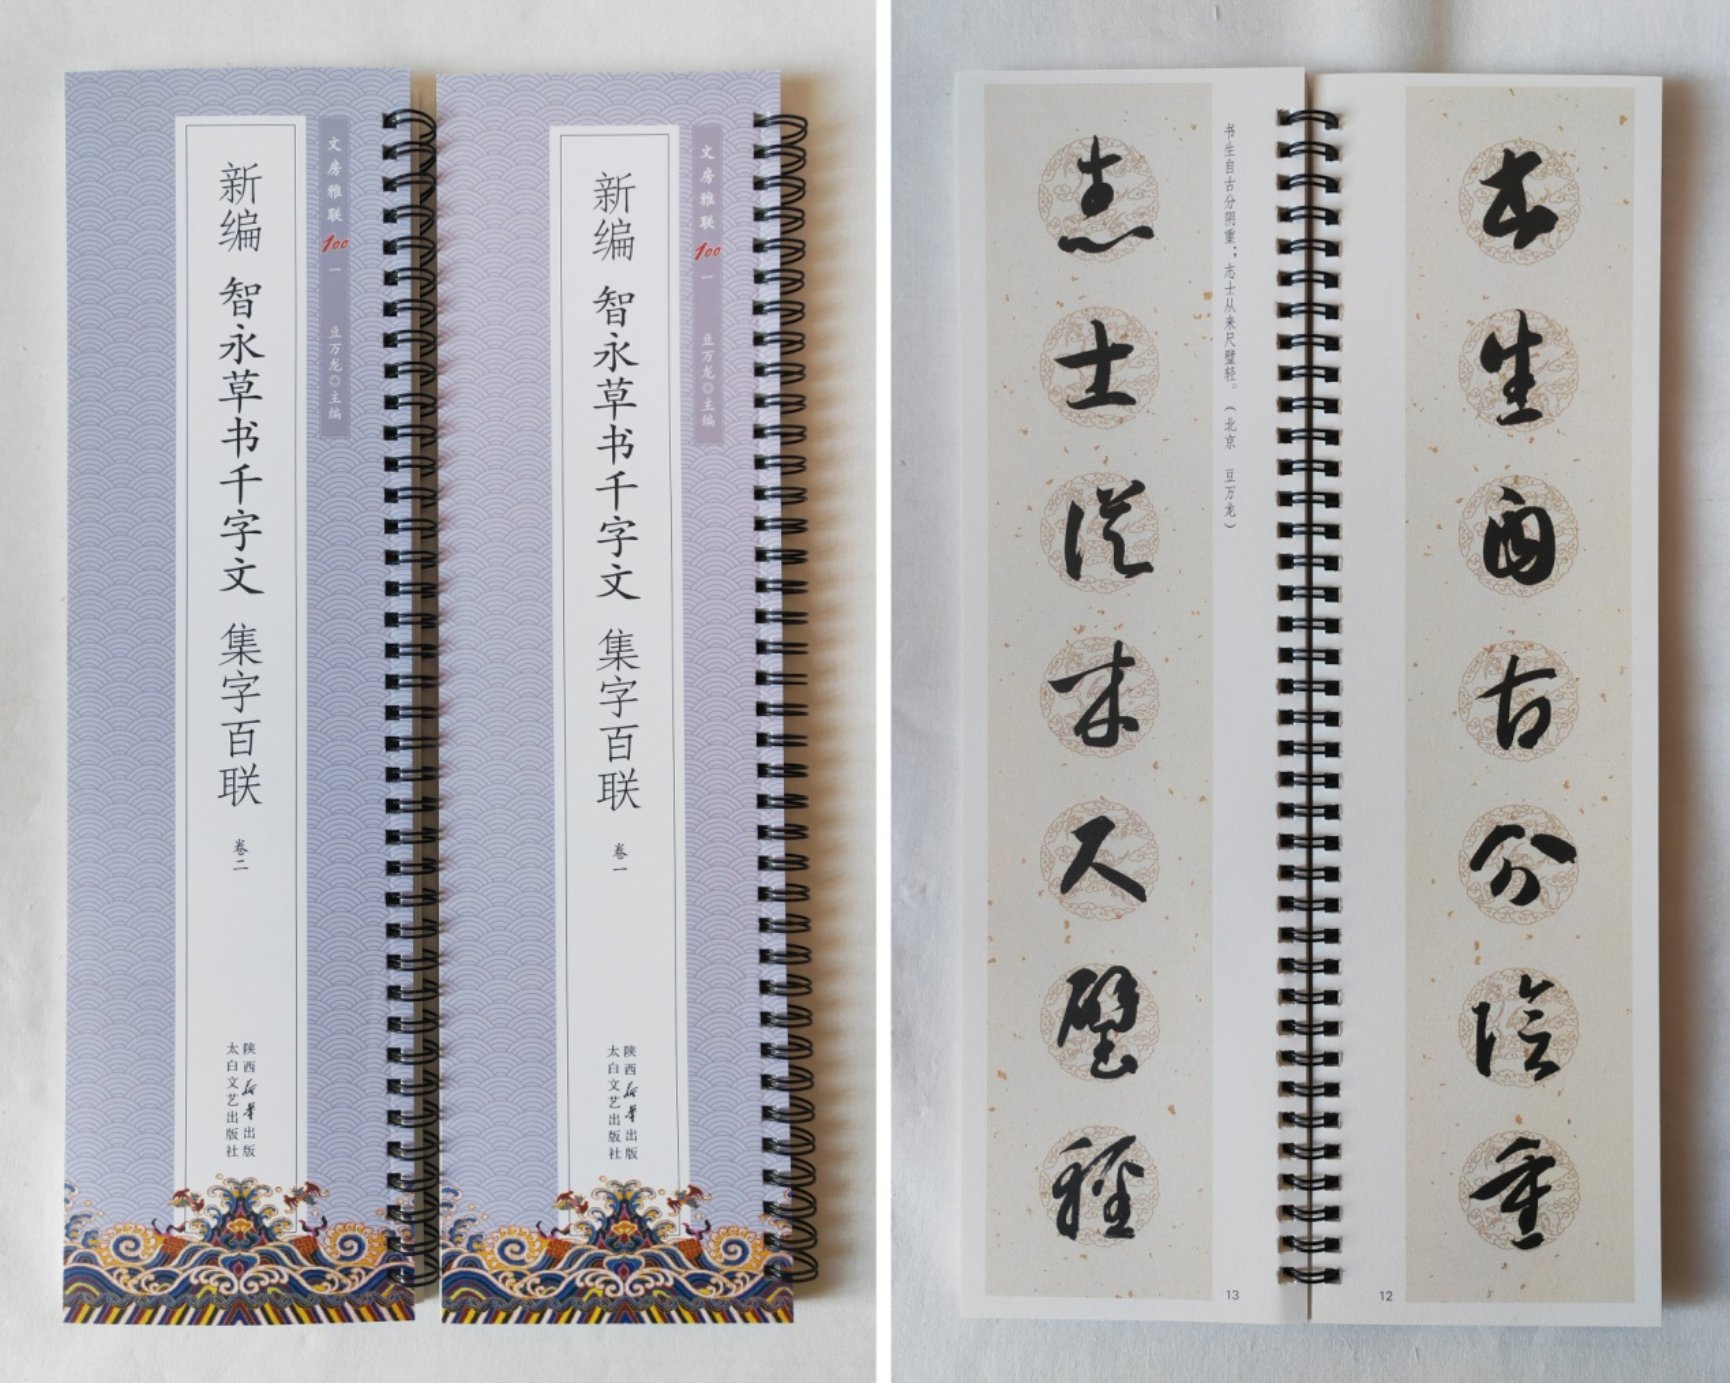 文房雅联100 一 豆万龙◎主编
新编 智永草书千字文 集字百联
卷二
陕西新华出版
太白文艺出版社
文房雅联100 一 豆万龙◎主编
新编 智永草书千字文 集字百联
卷一
陕西新华出版
太白文艺出版社
书生自古分阴重
12
书生自古分阴重；志士从来尺璧轻。（北京 豆万龙）
志士从来尺璧轻
13